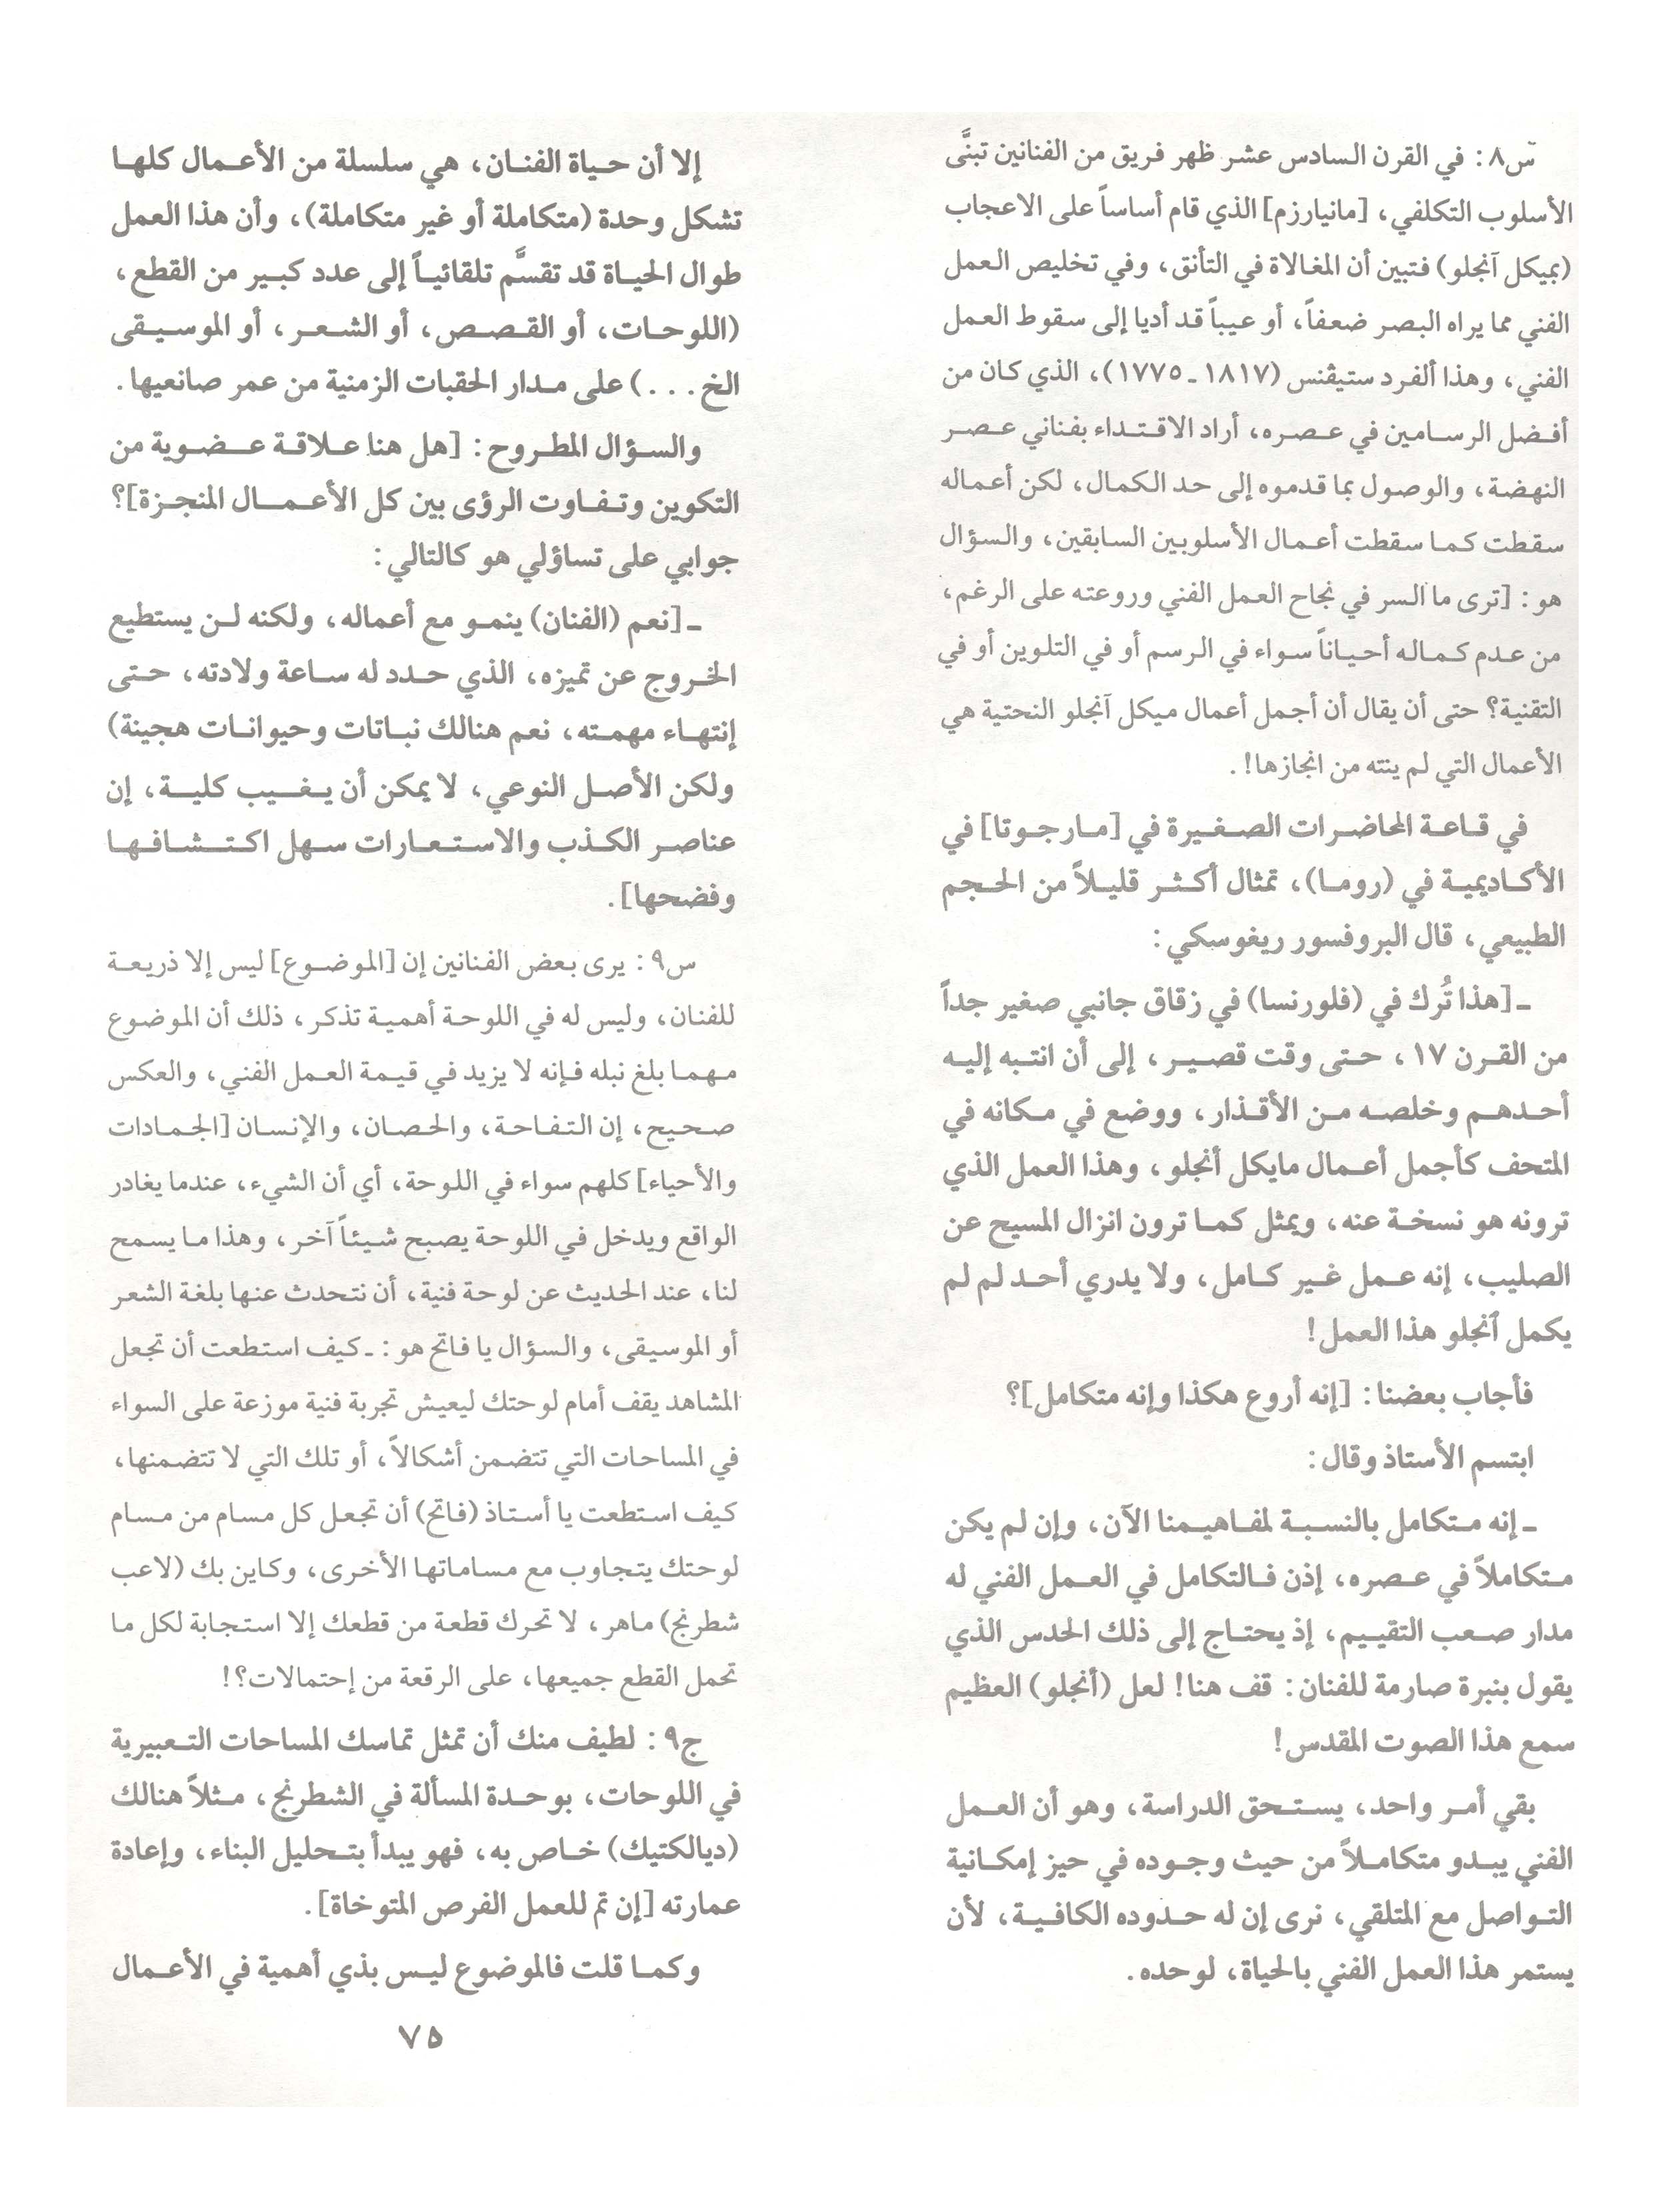 س٨: في القرن السادس عشر ظهر فريق من الفنانين تبنَّى
الأسلوب التكلفي، [مانيارزم] الذي قام أساساً على الاعجاب
(بميكل آنجلو) فتبين أن المغالاة في التأنق، وفي تخليص العمل
الفني مما يراه البصر ضعفاً، أو عيباً قد أديا إلى سقوط العمل
الفني، وهذا ألفرد ستيڤنس (١٨١٧ـ١٧٧٥)، الذي كان من
أفضل الرسامين في عصره، أراد الاقتداء بفناني عصر
النهضة، والوصول بما قدموه إلى حد الكمال، لكن أعماله
سقطت كما سقطت أعمال الأسلوبين السابقين، والسؤال
هو: [ترى ما السر في نجاح العمل الفني وروعته على الرغم،
من عدم كماله أحياناً سواء في الرسم أو في التلوين أو في
التقنية؟ حتى أن يقال أن أجمل أعمال ميكل آنجلو النحتية هي
الأعمال التي لم ينته من انجازها!.
في قاعة المحاضرات الصغيرة في [مارجوتا] في
الأكاديمية في (روما)، تمثال أكثر قليلاً من الحجم
الطبيعي، قال البروفسور ريغوسكي:
ـ [هذا تُرك في (فلورنسا) في زقاق جانبي صغير جداً
من القرن ١٧، حتى وقت قصير، إلى أن انتبه إليه
أحدهم وخلصه من الأقذار، ووضع في مكانه في
المتحف كأجمل أعمال مايكل أنجلو، وهذا العمل الذي
ترونه هو نسخة عنه، ويمثل كما ترون انزال المسيح عن
الصليب، إنه عمل غير كامل، ولا يدري أحد لم لم
يكمل آنجلو هذا العمل!
فأجاب بعضنا: [إنه أروع هكذا وإنه متكامل]؟
ابتسم الأستاذ وقال:
ـ إنه متكامل بالنسبة لمفاهيمنا الآن، وإن لم يكن
متكاملاً في عصره، إذن فالتكامل في العمل الفني له
مدار صعب التقييم، إذ يحتاج إلى ذلك الحدس الذي
يقول بنبرة صارمة للفنان: قف هنا! لعل (أنجلو) العظيم
سمع هذا الصوت المقدس!
بقي أمر واحد، يستحق الدراسة، وهو أن العمل
الفني يبدو متكاملاً من حيث وجوده في حيز إمكانية
التواصل مع المتلقي، نرى إن له حدوده الكافية، لأن
يستمر هذا العمل الفني بالحياة، لوحده.
إلا أن حياة الفنان، هي سلسلة من الأعمال كلها
تشكل وحدة (متكاملة أو غير متكاملة)، وأن هذا العمل
طوال الحياة قد تقسَّم تلقائياً إلى عدد كبير من القطع،
(اللوحات، أو القصص، أو الشعر، أو الموسيقى
الخ...) على مدار الحقبات الزمنية من عمر صانعيها.
والسؤال المطروح: [هل هنا علاقة عضوية من
التكوين وتفاوت الرؤى بين كل الأعمال المنجزة]؟
جوابي على تساؤلي هو كالتالي:
ـ [نعم (الفنان) ينمو مع أعماله، ولكنه لن يستطيع
الخروج عن تميزه، الذي حدد له ساعة ولادته، حتى
إنتهاء مهمته، نعم هنالك نباتات وحيوانات هجينة)
ولكن الأصل النوعي، لا يمكن أن يغيب كلية، إن
عناصر الكذب والاستعارات سهل اكتشافها
وفضحها].
س٩: يرى بعض الفنانين إن [الموضوع] ليس إلا ذريعة
للفنان، وليس له في اللوحة أهمية تذكر، ذلك أن الموضوع
مهما بلغ نبله فإنه لا يزيد في قيمة العمل الفني، والعكس
صحيح، إن التفاحة، والحصان، والإنسان [الجمادات
والأحياء] كلهم سواء في اللوحة، أي أن الشيء، عندما يغادر
الواقع ويدخل في اللوحة يصبح شيئاً آخر، وهذا ما يسمح
لنا، عند الحديث عن لوحة فنية، أن نتحدث عنها بلغة الشعر
أو الموسيقى، والسؤال يا فاتح هو: ـ كيف استطعت أن تجعل
المشاهد يقف أمام لوحتك ليعيش تجربة فنية موزعة على السواء
في المساحات التي تتضمن أشكالاً، أو تلك التي لا تتضمنها،
كيف استطعت يا أستاذ (فاتح) أن تجعل كل مسام من مسام
لوحتك يتجاوب مع مساماتها الأخرى، وكاين بك (لاعب
شطرنج) ماهر، لا تحرك قطعة من قطعك إلا استجابة لكل ما
تحمل القطع جميعها، على الرقعة من إحتمالات؟!
ج٩: لطيف منك أن تمثل تماسك المساحات التعبيرية
في اللوحات، بوحدة المسألة في الشطرنج، مثلاً هنالك
(ديالكتيك) خاص به، فهو يبدأ بتحليل البناء، وإعادة
عمارته [إن تم للعمل الفرص المتوخاة].
وكما قلت فالموضوع ليس بذي أهمية في الأعمال
٧٥